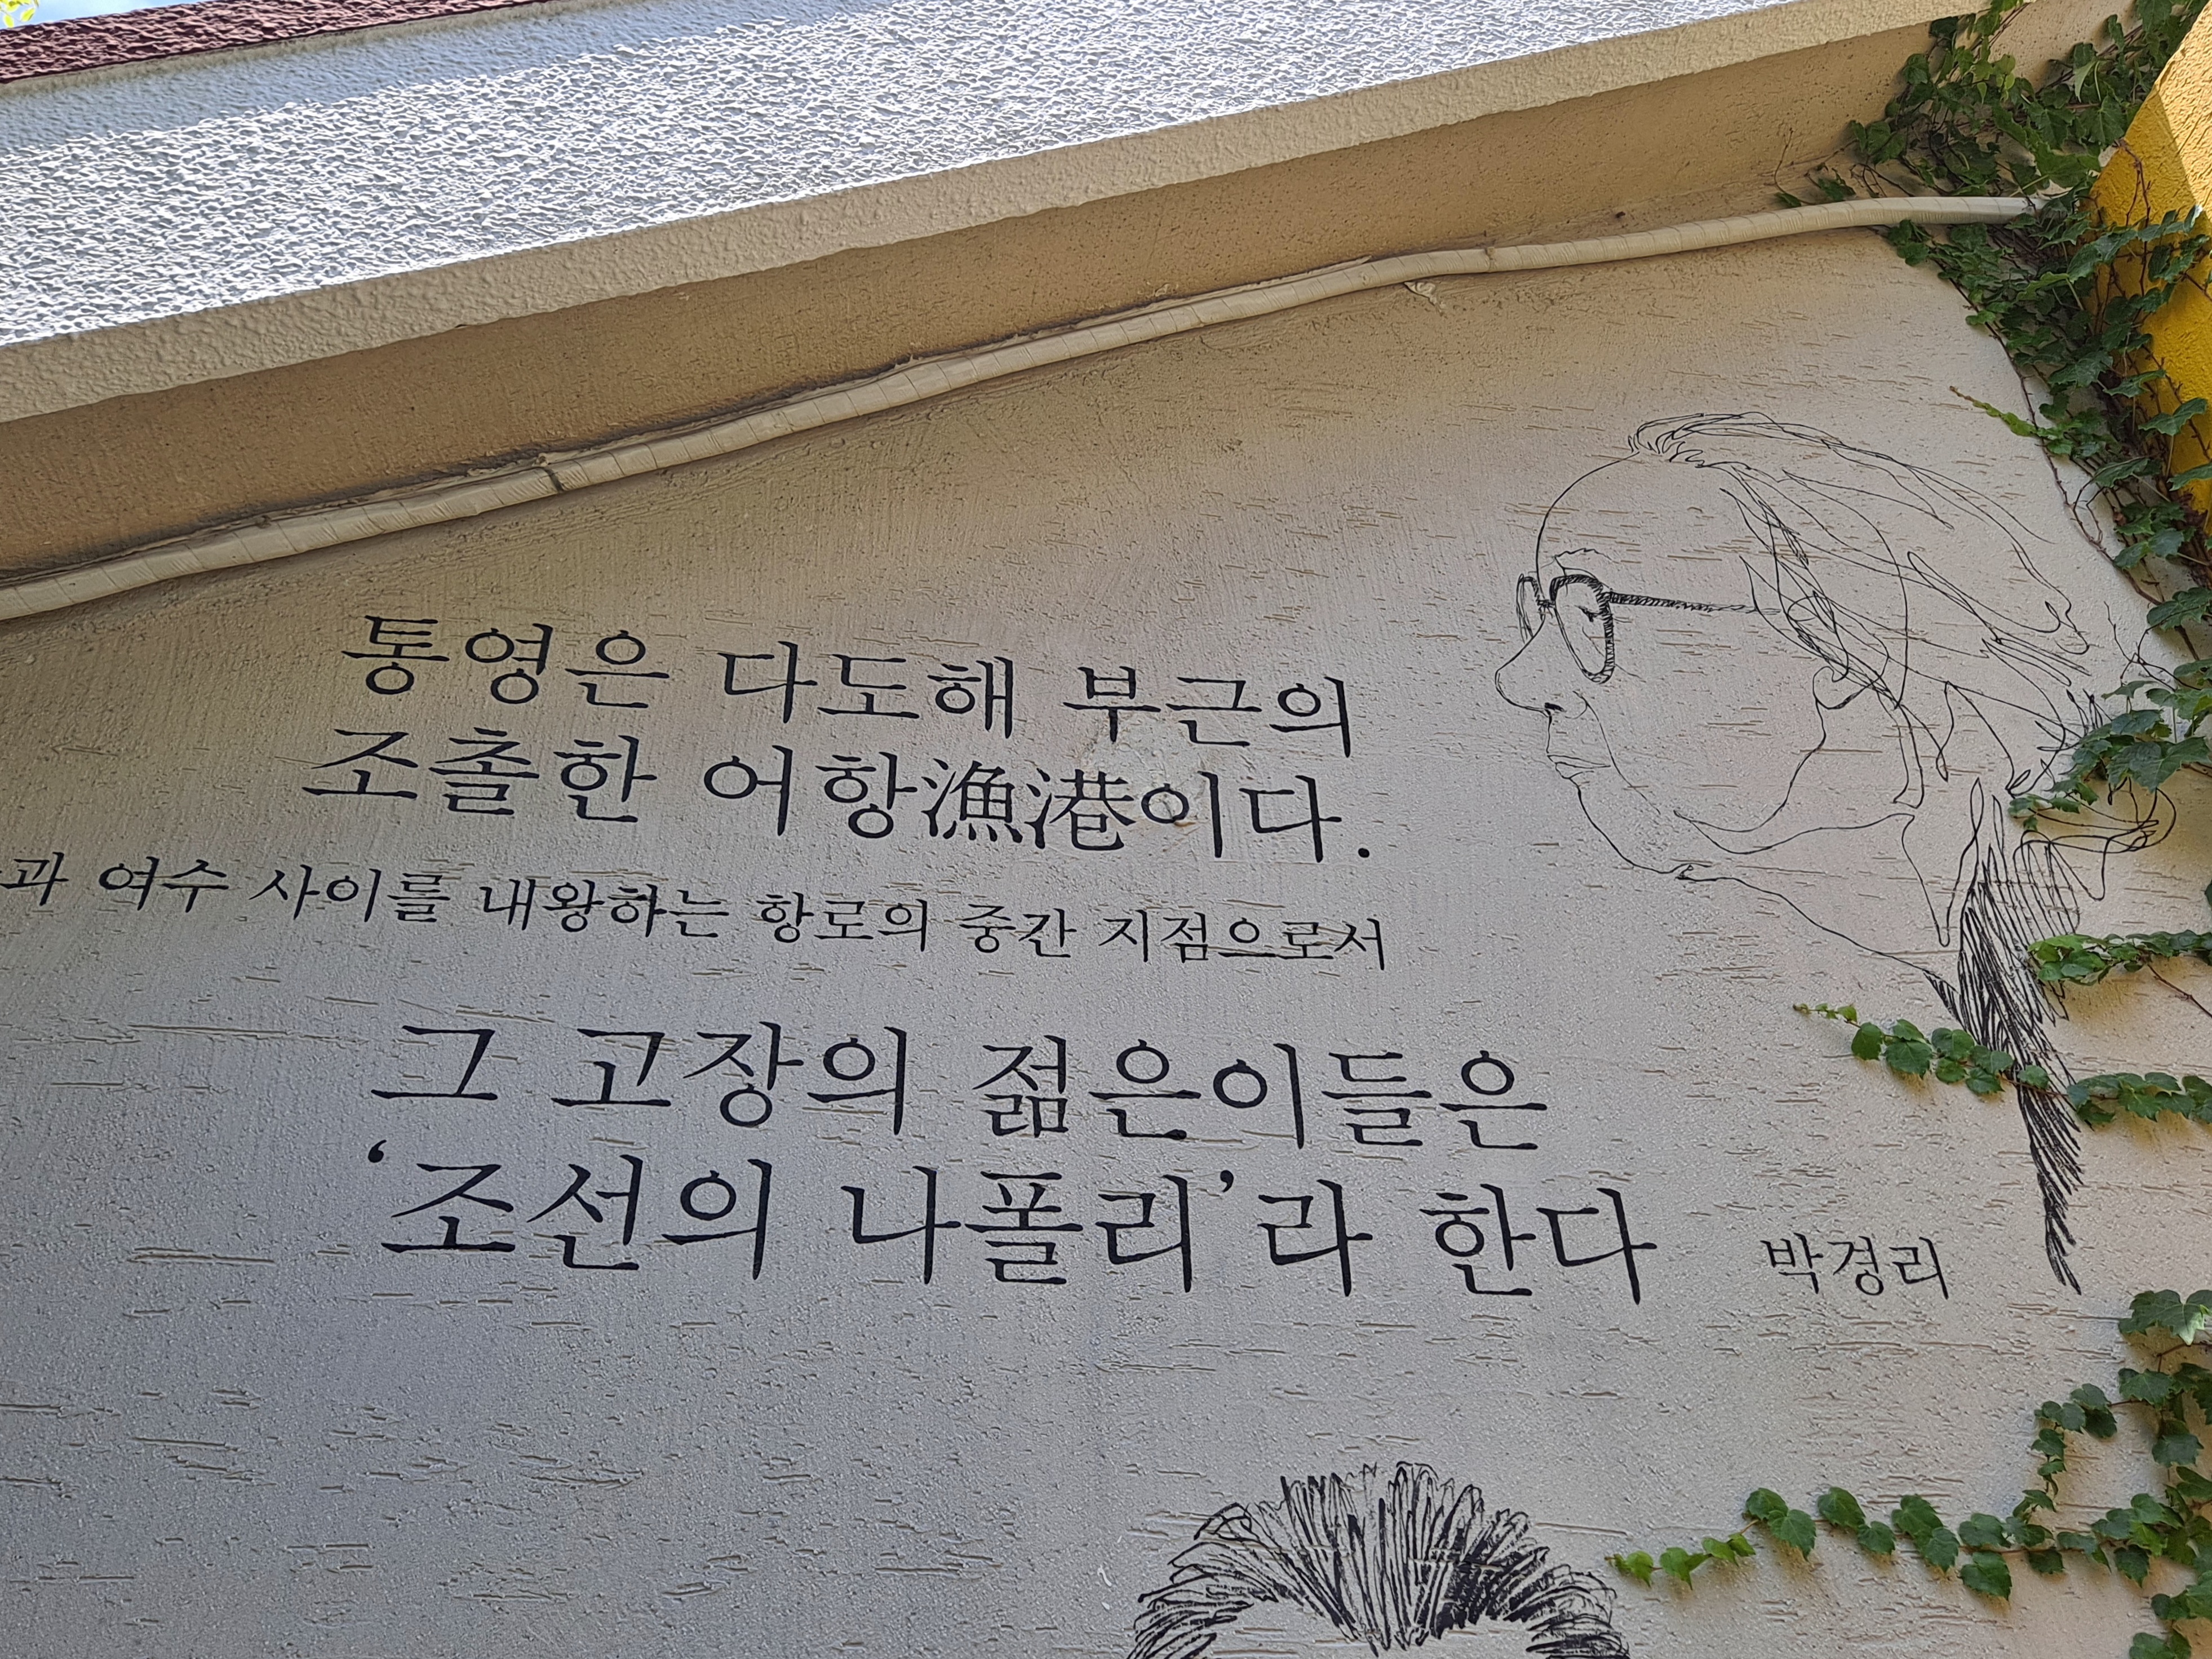 통영은 다도해 부근의
조촐한 어항漁港이다.
과 여수 사이를 내왕하는 항로의 중간 지점으로서
그 고장의 젊은이들은
‘조선의 나폴리’라 한다
박경리